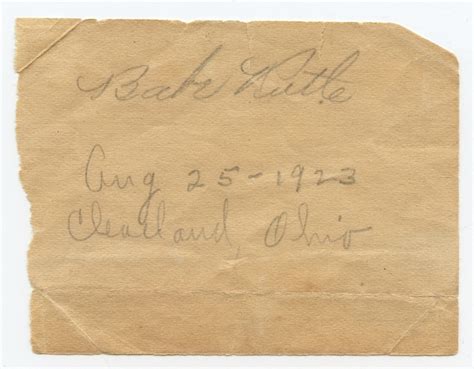 Babe Ruth
Aug 25-1923
Cleveland, Ohio